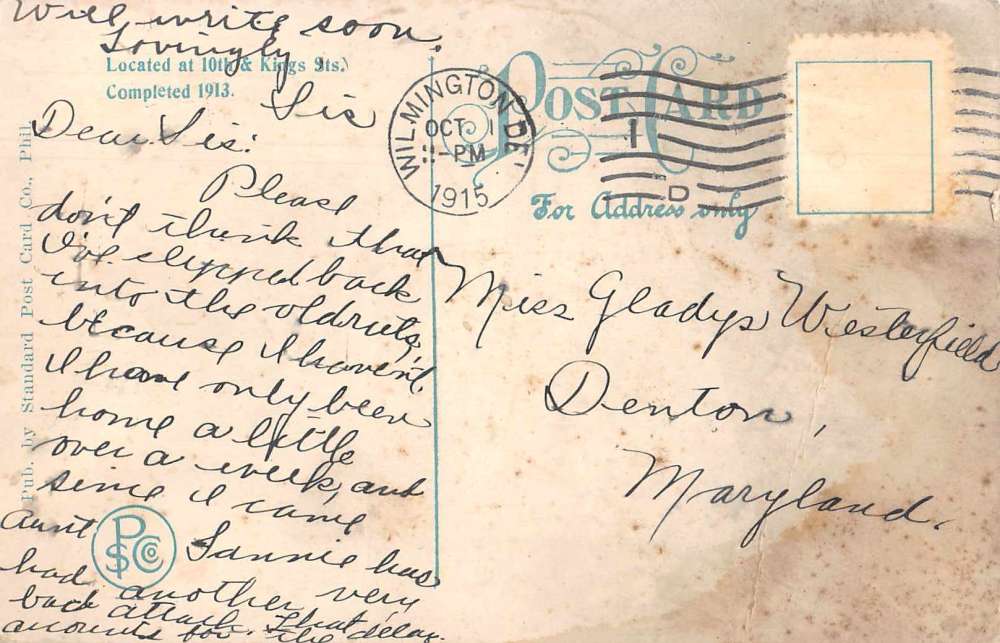 Will write soon.
Lovingly,
Sis
Located at 10th & Kings Sts.
Completed 1913.
POST CARD
For Address only
WILMINGTON DEL
OCT 1
-PM
1915
1
D
Dear Sis:
Please
don't think that
I've slipped back
into the old ruts,
because I haven't.
I have only been
home a little
over a week, and
since I came
Aunt Fannie has
had another very
bad attack. That
accounts for the delay.
Miss Gladys Westerfield
Denton,
Maryland.
Pub. by Standard Post Card Co., Phil
PSCCo